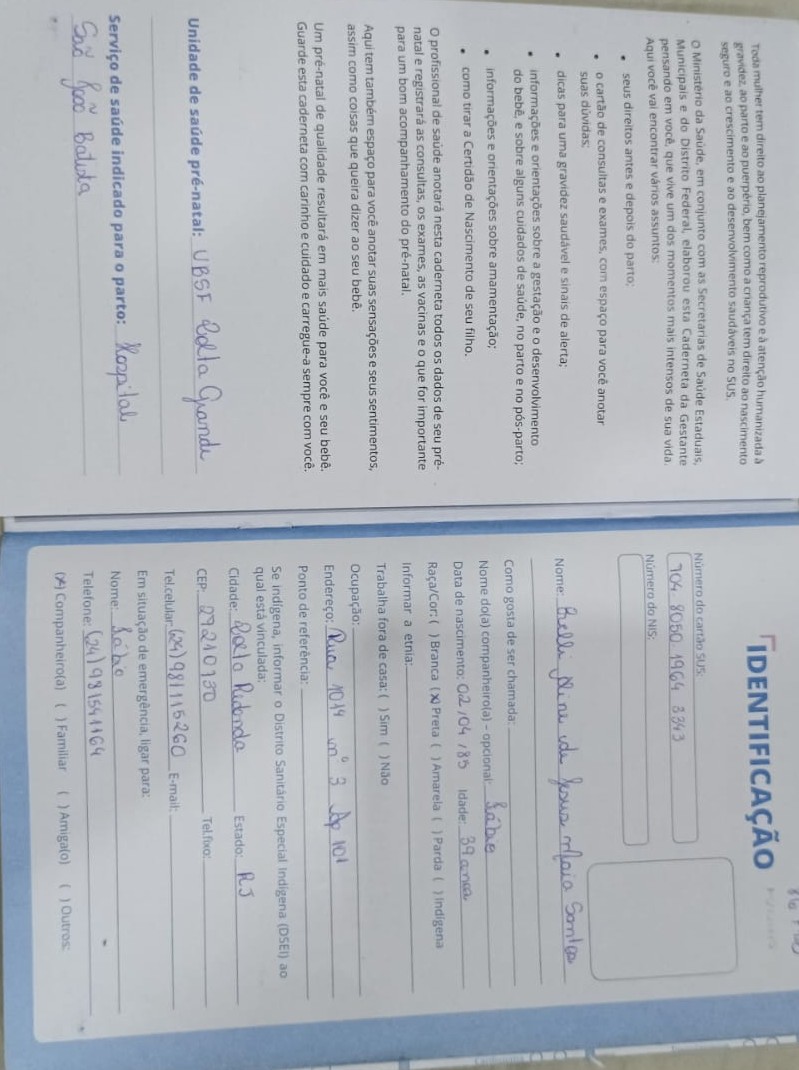 Toda mulher tem direito ao planejamento reprodutivo e à atenção humanizada à
gravidez, ao parto e ao puerpério, bem como a criança tem direito ao nascimento
seguro e ao crescimento e ao desenvolvimento saudáveis no SUS.
O Ministério da Saúde, em conjunto com as Secretarias de Saúde Estaduais,
Municipais e do Distrito Federal, elaborou esta Caderneta da Gestante
pensando em você, que vive um dos momentos mais intensos de sua vida.
Aqui você vai encontrar vários assuntos:
• seus direitos antes e depois do parto;
• o cartão de consultas e exames, com espaço para você anotar
suas dúvidas;
• dicas para uma gravidez saudável e sinais de alerta;
• informações e orientações sobre a gestação e o desenvolvimento
do bebê, e sobre alguns cuidados de saúde, no parto e no pós-parto;
• informações e orientações sobre amamentação;
• como tirar a Certidão de Nascimento de seu filho.
O profissional de saúde anotará nesta caderneta todos os dados de seu pré-
natal e registrará as consultas, os exames, as vacinas e o que for importante
para um bom acompanhamento do pré-natal.
Aqui tem também espaço para você anotar suas sensações e seus sentimentos,
assim como coisas que queira dizer ao seu bebê.
Um pré-natal de qualidade resultará em mais saúde para você e seu bebê.
Guarde esta caderneta com carinho e cuidado e carregue-a sempre com você.
Unidade de saúde pré-natal: UBSF Volta Grande
Serviço de saúde indicado para o parto: Hospital
São João Batista
IDENTIFICAÇÃO
Número do cartão SUS:
704 8050 1964 3343
Número do NIS:
Nome: Aline de Jesus Maia Santos
Como gosta de ser chamada:
Nome do(a) companheiro(a) - opcional: Fábio
Data de nascimento: 02/04/85 Idade: 39 anos
Raça/Cor: ( ) Branca (X) Preta ( ) Amarela ( ) Parda ( ) Indígena
Informar a etnia:
Trabalha fora de casa: ( ) Sim ( ) Não
Ocupação:
Endereço: Rua 1014 nº 3 Ap 101
Ponto de referência:
Se indígena, informar o Distrito Sanitário Especial Indígena (DSEI) ao
qual está vinculada:
Cidade: Volta Redonda Estado: RJ
CEP: 27210730 Tel.fixo:
Tel.celular: (24) 981115260 E-mail:
Em situação de emergência, ligar para:
Nome: Fábio
Telefone: (24) 981541164
(X) Companheiro(a) ( ) Familiar ( ) Amiga(o) ( ) Outros: